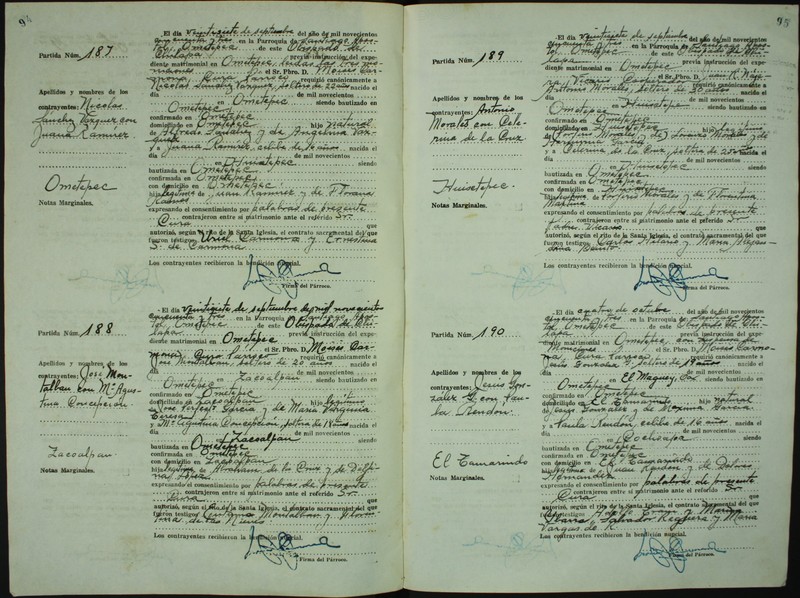 94
Partida Núm. 187
Apellidos y nombres de los
contrayentes: Nicolas
Sanchez Vazquez con
Juana Ramirez
Ometepec
Notas Marginales.
El día veintisiete de septiembre del año de mil novecientos
cincuenta y tres en la Parroquia de Santiago Apos-
tol, Ometepec de este Obispado de
Chilapa previa instrucción del expe-
diente matrimonial en Ometepec,
el Sr. Pbro. D. Moises Car-
mona, Cura Parroco requirió canónicamente a
Nicolas Sanchez Vazquez, soltero de 22 años nacido el
día de mil novecientos
en Ometepec siendo bautizado en
Ometepec
confirmado en Ometepec
domiciliado en Ometepec hijo natural
de Alfredo Sanchez y de Angelina Vaz-
quez
y a Juana Ramirez, celibe de 16 años. nacida el
día de mil novecientos
en Huistepec siendo
bautizada en Ometepec
confirmada en Ometepec
con domicilio en Ometepec
hija legitima de Juan Ramirez y de
expresando el consentimiento por palabras de presente
contrajeron entre sí matrimonio ante el referido Sr.
Cura que
autorizó, según el rito de la Santa Iglesia, el contrato sacramental del que
fueron testigos: Uriel Carmona y Ernestina
S. de Carmona
Los contrayentes recibieron la bendición nupcial.
Firma del Párroco.
Partida Núm. 188
Apellidos y nombres de los
contrayentes: José Mon-
talban con Mª Agus-
tina Concepción
Zacoalpan
Notas Marginales.
El día veintisiete de septiembre de mil novecientos
cincuenta y tres en la Parroquia de Santiago Apos-
tol, Ometepec de este Obispado de Chi-
lapa previa instrucción del expe-
diente matrimonial en Ometepec
el Sr. Pbro. D. Moises Car-
mona, Cura Parroco requirió canónicamente a
Jose Montalban, soltero de 20 años nacido el
día de mil novecientos
en Zacoalpan siendo bautizado en
Ometepec
confirmado en Ometepec
domiciliado en Zacoalpan hijo legitimo
de Jose Garcia y de Maria Virginia
Teresa
y Mª Agustina Concepcion, soltera de 18 años nacida el
día de mil novecientos
en Zacoalpan siendo
bautizada en Ometepec
confirmada en Ometepec
con domicilio en Zacoalpan
hija legitima de Abraham de la Cruz y de
expresando el consentimiento por palabras de presente
contrajeron entre sí matrimonio ante el referido Sr.
Cura que
autorizó, según el rito de la Santa Iglesia, el contrato sacramental del que
fueron testigos: Montalban y
de las Nieves
Los contrayentes recibieron la bendición nupcial.
Firma del Párroco.
95
Partida Núm. 189
Apellidos y nombres de los
contrayentes: Antonio
Morales con Cata-
rina de la Cruz
Huistepec
Notas Marginales.
El día veintisiete de septiembre del año de mil novecientos
cincuenta y tres en la Parroquia de Santiago Apos-
tol, Ometepec de este Obispado de Chi-
lapa previa instrucción del expe-
diente matrimonial en Ometepec
el Sr. Pbro. D. Juan
Vicario requirió canónicamente a
Antonio Morales, soltero de 20 años nacido el
día de mil novecientos
en Huistepec siendo bautizado en
Ometepec
confirmado en Ometepec
domiciliado en Huistepec hijo
de y de
Garcia
y a Caterina de la Cruz, soltera de nacida el
día de mil novecientos
en Huistepec siendo
bautizada en Ometepec
confirmada en Ometepec
con domicilio en Huistepec
hija de Morales y de Florentina
Martina
expresando el consentimiento por palabras de presente
contrajeron entre sí matrimonio ante el referido Sr.
Padre Vicario que
autorizó, según el rito de la Santa Iglesia, el contrato sacramental del que
fueron testigos: Carlos Hilario y Maria
Los contrayentes recibieron la bendición nupcial.
Firma del Párroco.
Partida Núm. 190
Apellidos y nombres de los
contrayentes: Jesus Gon-
zalez G. con Pau-
la Rendon.
El Tamarindo
Notas Marginales.
El día cuatro de octubre del año de mil novecientos
cincuenta y tres en la Parroquia de Santiago Apos-
tol, Ometepec de este Obispado de Chi-
lapa previa instrucción del expe-
diente matrimonial en Ometepec, con dispensa de
el Sr. Pbro. D. Moises Carmo-
na, Cura Parroco requirió canónicamente a
Jesus Gonzalez G. soltero de 19 años nacido el
día de mil novecientos
en El Maguey, Oax. siendo bautizado en
Ometepec
confirmado en Ometepec
domiciliado en El Tamarindo hijo natural
de Gonzalez y de Maxima Garcia
y a Paula Rendon, celibe de 16 años. nacida el
día de mil novecientos
en Cochoapa siendo
bautizada en Ometepec
confirmada en Ometepec
con domicilio en El Tamarindo
hija legitima de Juan Rendon y de Dolores
Hernandez
expresando el consentimiento por palabras de presente
contrajeron entre sí matrimonio ante el referido Sr.
Cura que
autorizó, según el rito de la Santa Iglesia, el contrato sacramental del que
fueron testigos:
Ibarra, Salvador Reguera y Maria
Vargas de R.
Los contrayentes recibieron la bendición nupcial.
Firma del Párroco.